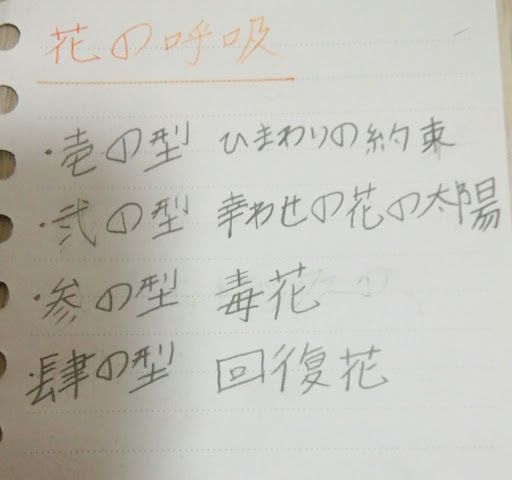 花の呼吸
・壱の型 ひまわりの約束
・弐の型 幸わせの花の太陽
・参の型 毒花
・肆の型 回復花